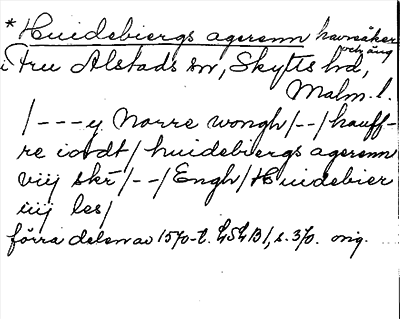 * Huidebiergs agerenn havresäker
och äng
i Fru Alstads sn, Skytts hd,
Malm. l.
/---y Norre wongh/--/hauff-
re iordt/huidebiergs agerenn
viij skr/--/Engh/Huidebier
iiij les/
förra delen av 1570-t. LSLB1, s. 370. orig.